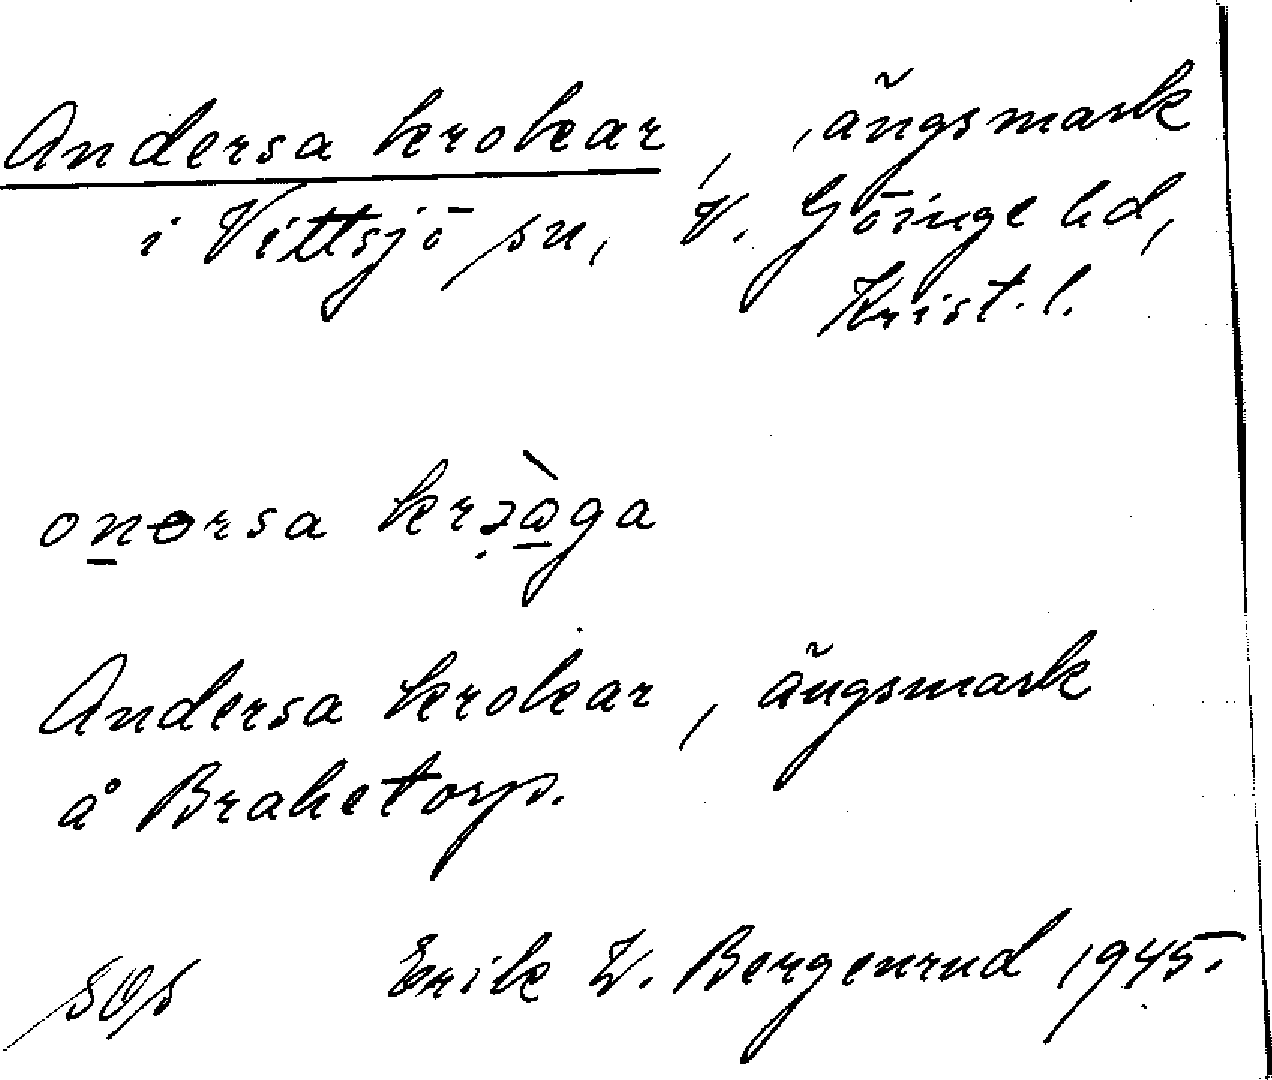 Andersa krokar, ängsmark
i Vittsjö sn, V. Göinge hd,
Krist. l.
onərsa krɔ̣ὰga
Andersa krokar, ängsmark
å Brahetorp.
Erik W. Bergenrud 1945.